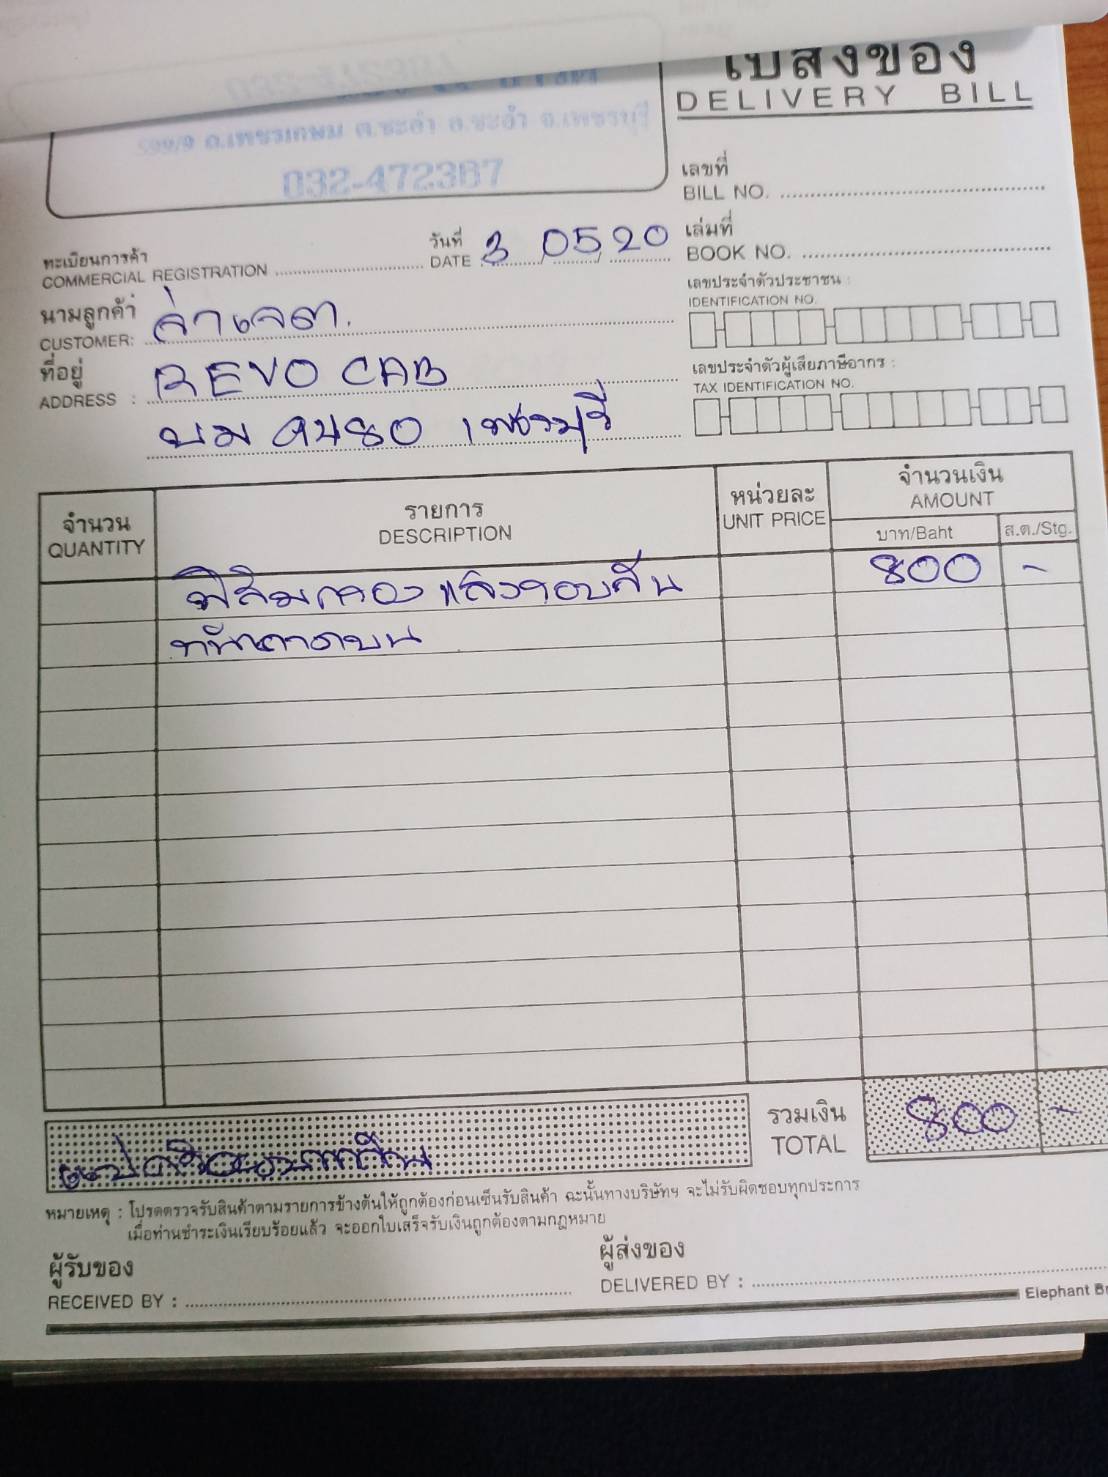 ใบส่งของ
DELIVERY BILL
599/9 ถ.เพชรเกษม ต.ชะอำ อ.ชะอำ จ.เพชรบุรี
032-472367
เลขที่
BILL NO.
ทะเบียนการค้า
COMMERCIAL REGISTRATION
วันที่
DATE 3 05 20
เล่มที่
BOOK NO.
เลขประจำตัวประชาชน :
IDENTIFICATION NO.
นามลูกค้า
CUSTOMER: จ่าเจต.
ที่อยู่
ADDRESS : REVO CAB
เลขประจำตัวผู้เสียภาษีอากร :
TAX IDENTIFICATION NO.
บม เพชรบุรี
จำนวน
QUANTITY
รายการ
DESCRIPTION
หน่วยละ
UNIT PRICE
จำนวนเงิน
AMOUNT
บาท/Baht
ส.ต./Stg.
ฟิล์มกรองแสงรอบคัน 800 -
คาดบน
รวมเงิน
TOTAL
800 -
หมายเหตุ : โปรดตรวจรับสินค้าตามรายการข้างต้นให้ถูกต้องก่อนเซ็นรับสินค้า ฉะนั้นทางบริษัทฯ จะไม่รับผิดชอบทุกประการ
เมื่อท่านชำระเงินเรียบร้อยแล้ว จะออกใบเสร็จรับเงินถูกต้องตามกฎหมาย
ผู้รับของ
RECEIVED BY :
ผู้ส่งของ
DELIVERED BY :
Elephant